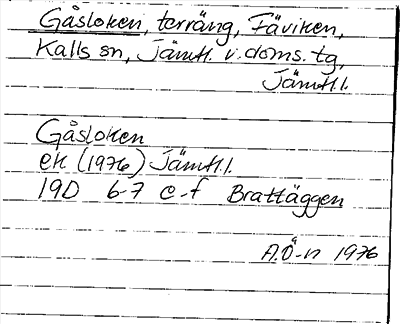 Gåsloken, terräng, Fäviken,
Kalls sn, Jämtl. v. doms. tg,
Jämtl.l.
Gåsloken
ek (1976) Jämtl.l.
19D 6-7 e-f Brattäggen
A.Ö-n 1976